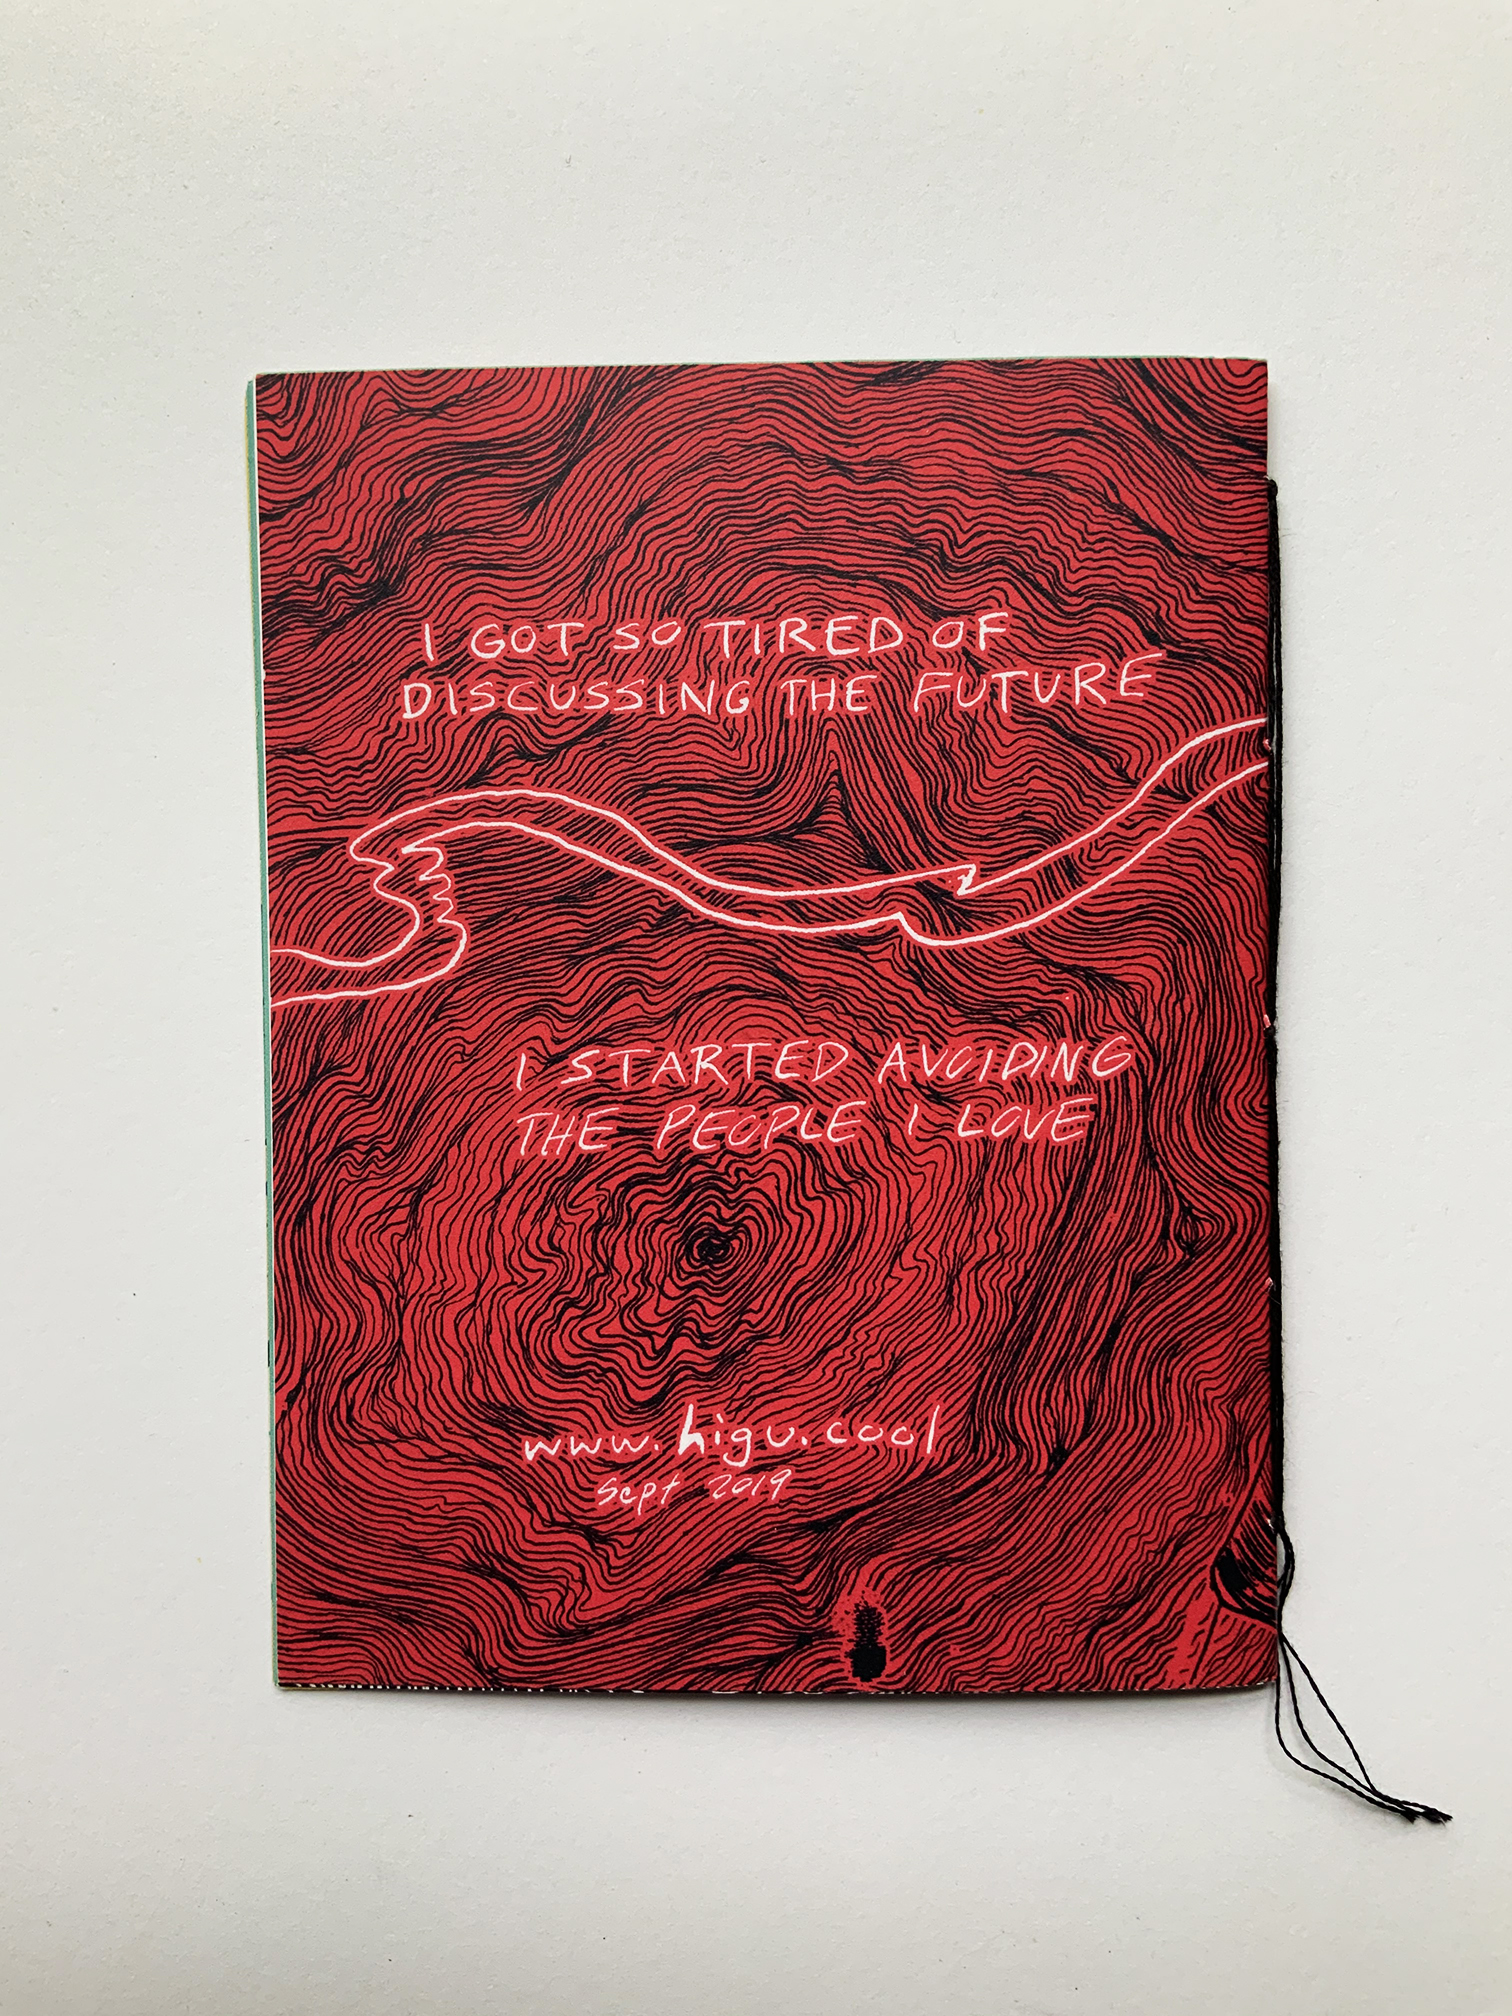 I GOT SO TIRED OF
DISCUSSING THE FUTURE
I STARTED AVOIDING
THE PEOPLE I LOVE
www.higu.cool
Sept 2019